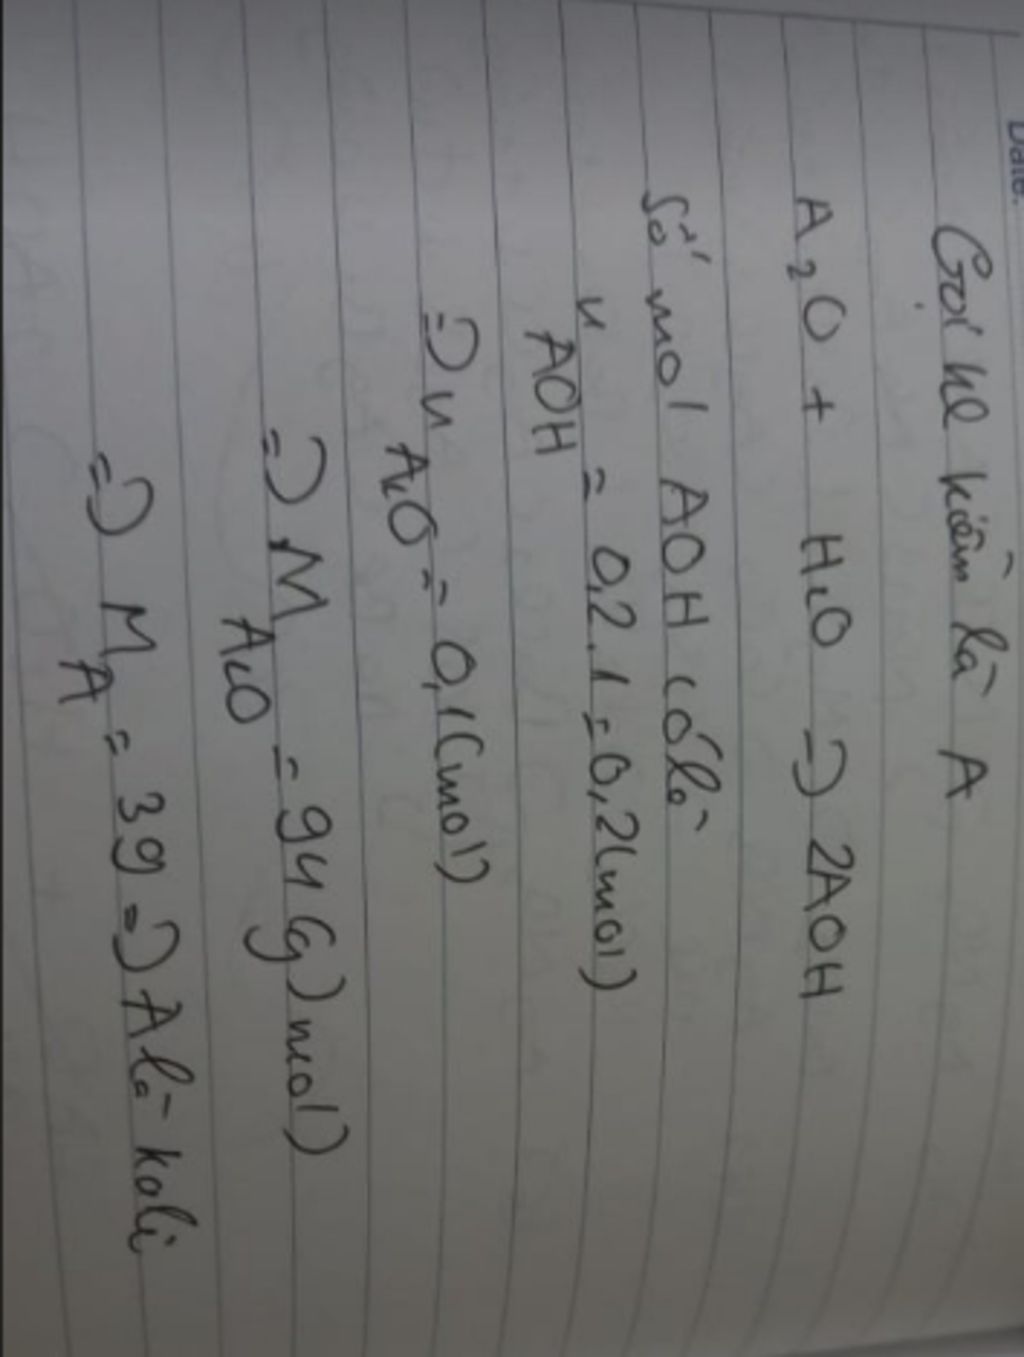 Date.
Gọi hl kiềm là A
A₂O + H₂O => 2AOH
Số mol AOH có là
n AOH = 0,2.1 = 0,2(mol)
=> n A₂O = 0,1(mol)
=> M A₂O = 94(g/mol)
=> M A = 39 => A là kali